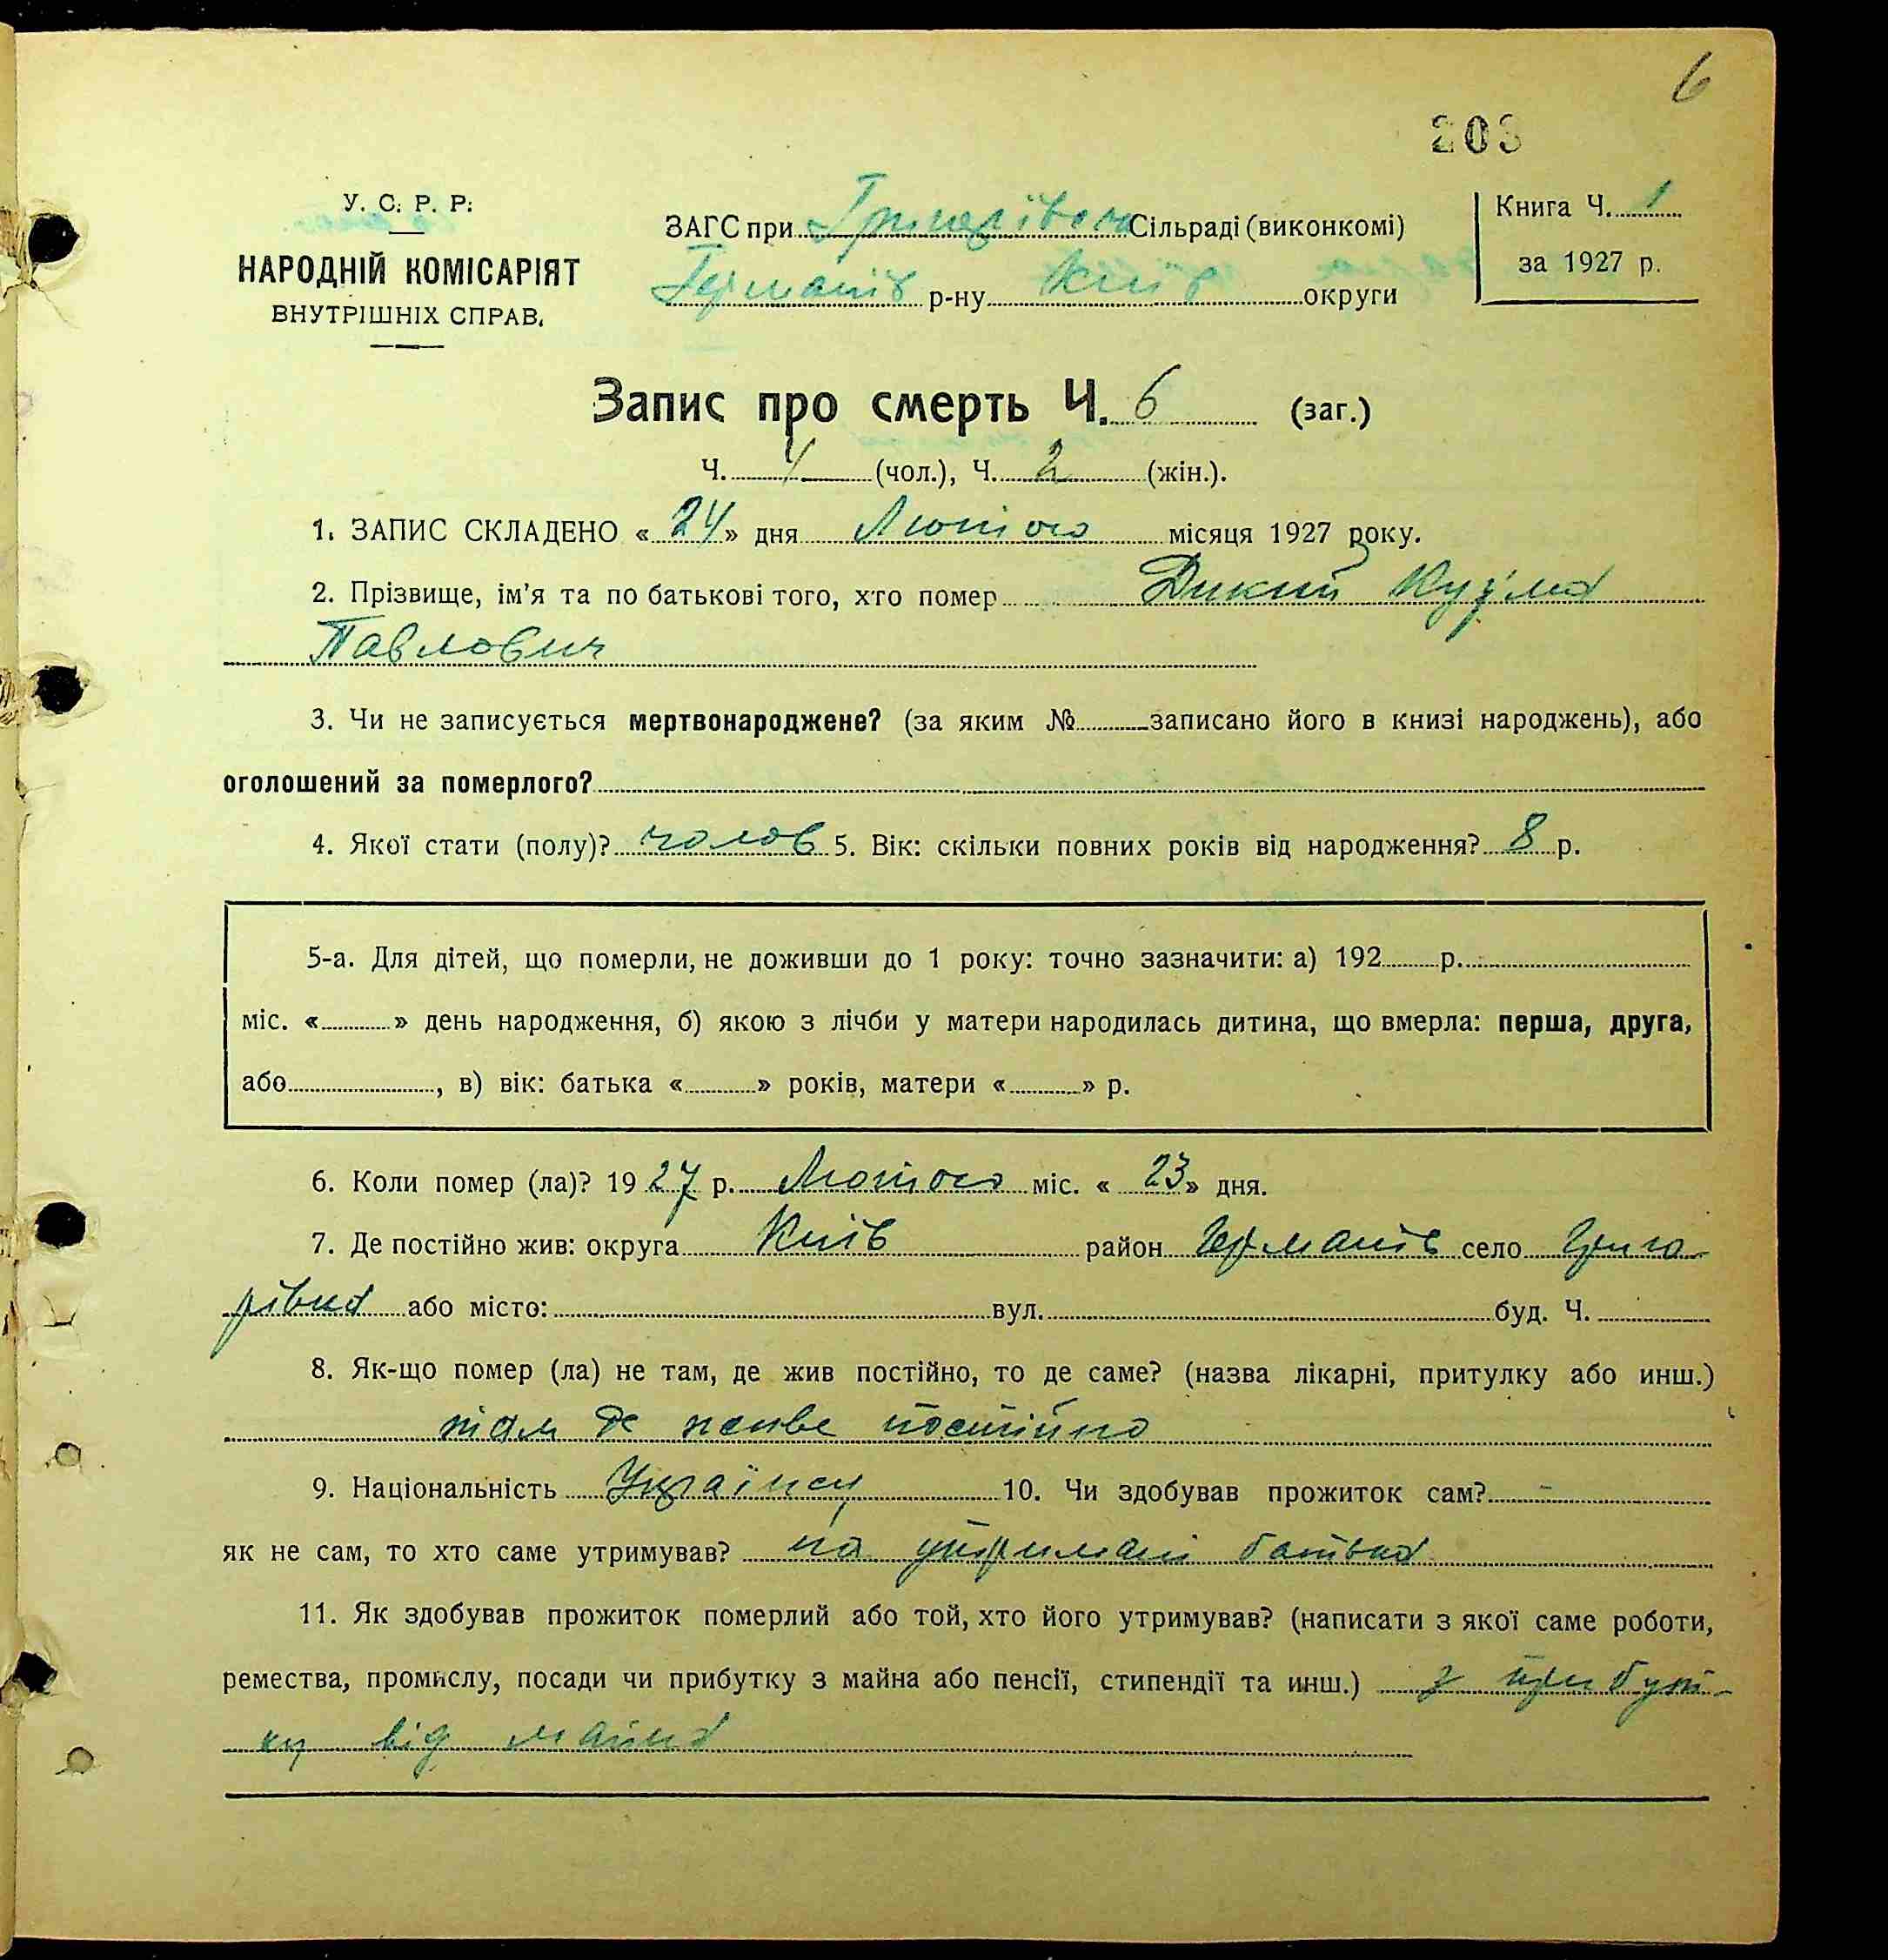 6
203
У. С. Р. Р.
НАРОДНІЙ КОМІСАРІЯТ
ВНУТРІШНІХ СПРАВ.
ЗАГС при Григорівськ Сільраді (виконкомі)
Германів р-ну Київ округи
Книга Ч. 1
за 1927 р.
Запис про смерть Ч. 6 (заг.)
Ч. 4 (чол.), Ч. 2 (жін.).
1. ЗАПИС СКЛАДЕНО « 24 » дня Лютого місяця 1927 року.
2. Прізвище, ім'я та по батькові того, хто помер Дикий Кузьма
Павлович
3. Чи не записується мертвонароджене? (за яким № записано його в книзі народжень), або
оголошений за померлого?
4. Якої стати (полу)? чолов 5. Вік: скільки повних років від народження? 8 р.
5-а. Для дітей, що померли, не доживши до 1 року: точно зазначити: а) 192 р.
міс. « » день народження, б) якою з лічби у матери народилась дитина, що вмерла: перша, друга,
або , в) вік: батька « » років, матери « » р.
6. Коли помер (ла)? 19 27 р. Лютого міс. « 23 » дня.
7. Де постійно жив: округа Київ район Германів село Григо-
рівка або місто: вул. буд. Ч.
8. Як-що помер (ла) не там, де жив постійно, то де саме? (назва лікарні, притулку або инш.)
там де живе постійно
9. Національність Українец 10. Чи здобував прожиток сам? -
як не сам, то хто саме утримував? на утримані батька
11. Як здобував прожиток померлий або той, хто його утримував? (написати з якої саме роботи,
ремества, промислу, посади чи прибутку з майна або пенсії, стипендії та инш.) з прибут-
ку від майна